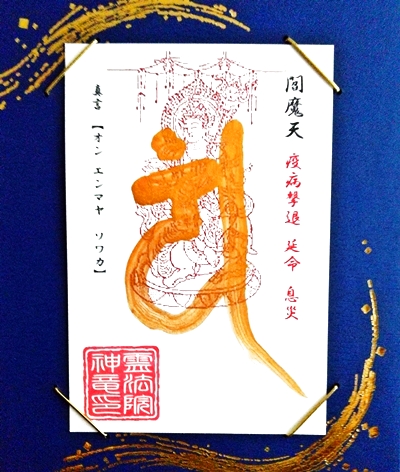 閻魔天
疫病撃退 延命 息災
真言【オン エンマヤ ソワカ】
霊法院
神竜印